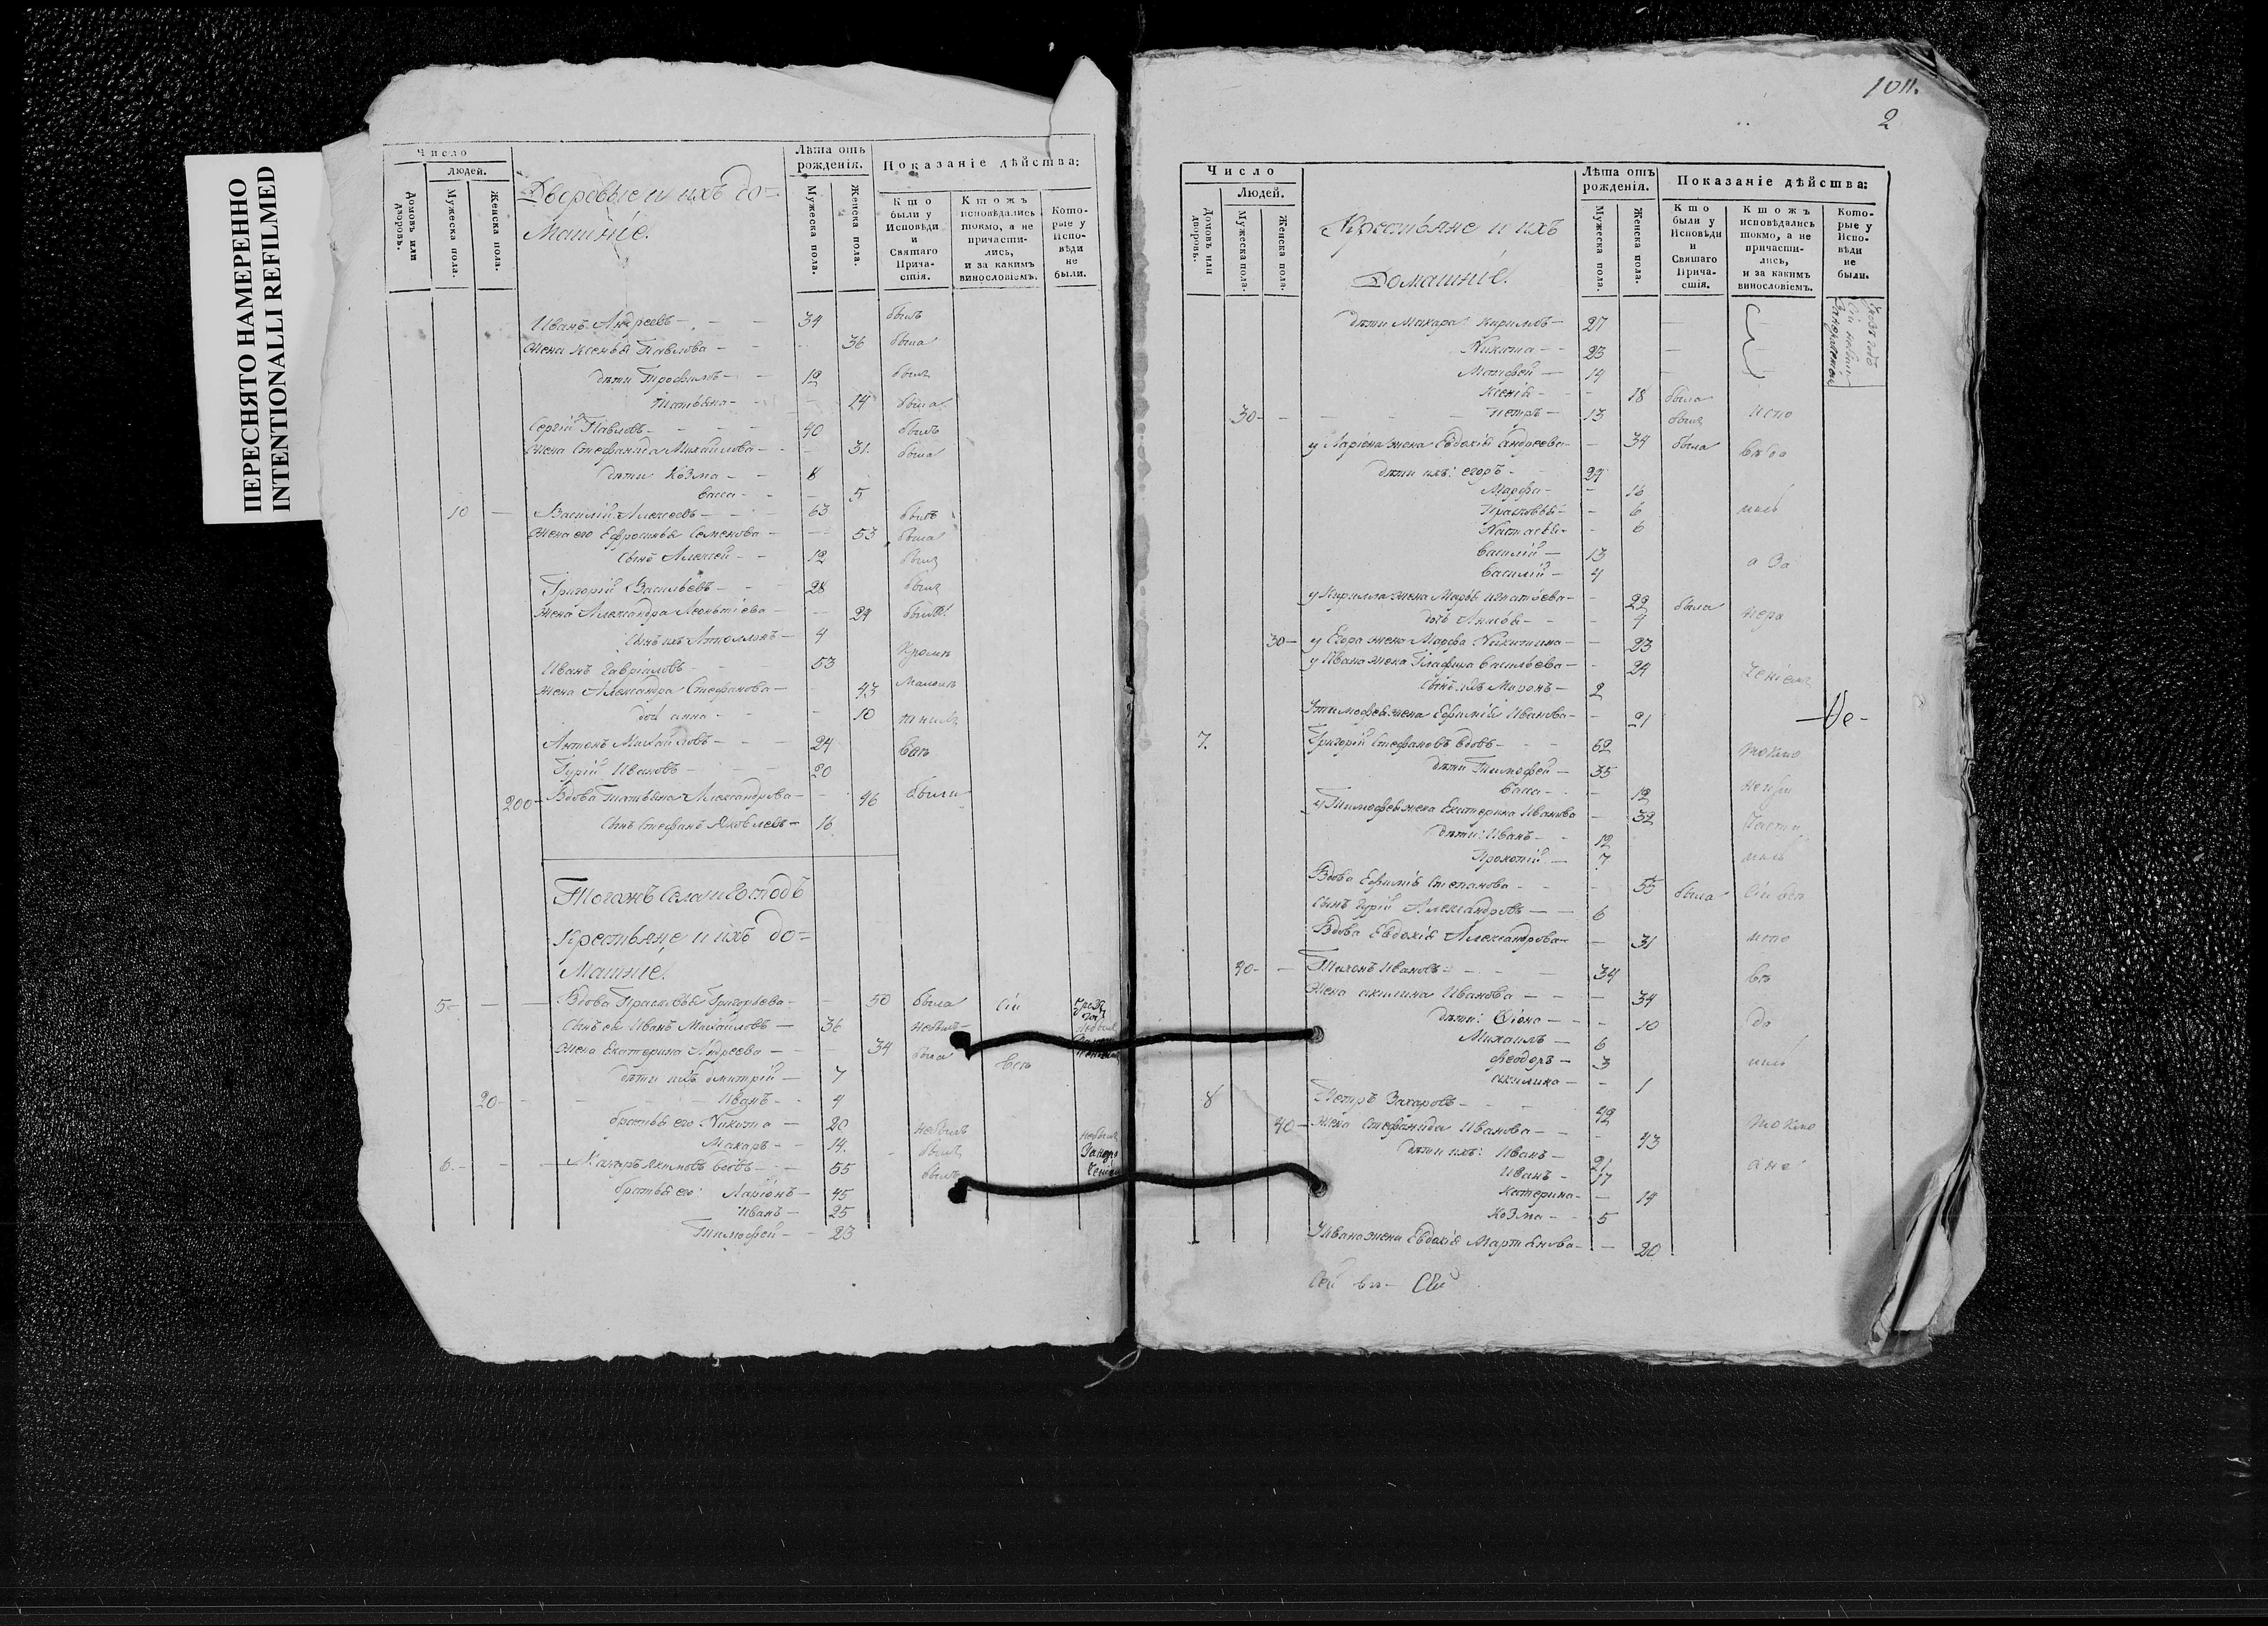 ПЕРЕСНЯТО НАМЕРЕННО
INTENTIONALLI REFILMED
Число
людей.
Домовъ или дворовъ.
Мужеска пола.
Женска пола.
Дворовые и ихъ до=
машніе.
Лѣта отъ рожденія.
Мужеска пола.
Женска пола.
Показаніе дѣйства:
Кто были у Исповѣди и Святаго Прича-стія.
Ктожъ исповѣдались токмо, а не причасти-лись, и за какимъ винословіемъ.
Кото-рые у Испо-вѣди не были.
Иванъ Андреевъ 34 былъ
жена Ксенья Павлова 36 была
дѣти Трофимъ 12 былъ
Татьяна 14 была
Сергій Павловъ 40 былъ
жена Стефанида Михайлова 31 была
дѣти Козма 8
Васса 5
10 Василій Алексеевъ 63 былъ
Жена его Ефросинья Семенова 53 была
сынъ Алексей 12 былъ
Григорій Васильевъ 28 былъ
жена Александра Леонтіева 29
сынъ ихъ Аполлонъ 4
Иванъ Гавриловъ 53 Кромѣ
жена Александра Стефанова 43 малолѣ
дочь анна 10 тныхъ
Антонъ Михайловъ 24 всѣ
Гурій Ивановъ 20
200 Вдова татьяна Александрова 46 были
Сынъ Стефанъ Яковлевъ 16
Тогожъ села и господъ
Крестьяне и ихъ до=
машніе.
5 Вдова Прасковья Григорьева 50 была сіи
Сынъ ея Иванъ Михайловъ 36 небылъ
жена Екатерина Андреева 34 была всѣ
дѣти ихъ Дмитрій 7
20 Иванъ 4
братья его Никита 20 небылъ небылъ
Макаръ 14 былъ
6. Макаръ Якимовъ вдовъ 55 былъ
братья его: Ларіонъ 45
Иванъ 25
Тимофей 23
1011.
2
Число
Людей.
Домовъ или дворовъ.
Мужеска пола.
Женска пола.
Крестьяне и ихъ
Домашніе.
Лѣта отъ рожденія.
Мужеска пола.
Женска пола.
Показаніе дѣйства:
Кто были у Исповѣди и Святаго Прича-стія.
Ктожъ исповѣдались токмо, а не причасти-лись, и за какимъ винословіемъ.
Кото-рые у Испо-вѣди не были.
дѣти Макара Кирилъ 27
Никита 23
Матфей 14
Ксенія 18 была
30 петръ 13 былъ испо
у Ларіона жена Евдокія Андреева 34 была вѣда
дѣти ихъ: егоръ 21
Марфа 16
Прасковья 6 лись
Настасья 6
Василій 13
Василій 4 а за
у Кирилла жена Марья Игнатіева 22 была нера
дочь Анисья 4
30 у Егора жена Марфа Никитина 23
у Ивана жена Глафира Васильева 24 деніемъ
сынъ ихъ Миронъ 2
У тимофея жена Ефимія Иванова 21
7. Григорій Стефановъ вдовъ 62 токмо
дѣти Тимофей 35
Васса 12 непри
у Тимофея жена Екатерина Иванова 32 части
дѣти: Иванъ 12
Прокопій 7 лись
Вдова Ефимія Степанова 55 была
Сынъ Гурій Александровъ 6
Вдова Евдокія Александрова 31 испо
40 Тихонъ Ивановъ 34 вѣ
Жена акилина Иванова 34
дѣти: Фіона 10 да
Михаилъ 6
Феодоръ 3 лись
акилина 1
8 Петръ Захаровъ 42
40 Жена Стефанида Иванова 43 токмо
дѣти ихъ: Иванъ 21 а не
Иванъ 17
Катерина 14
Козма 5
У Ивана жена Евдокія Мартынова 20